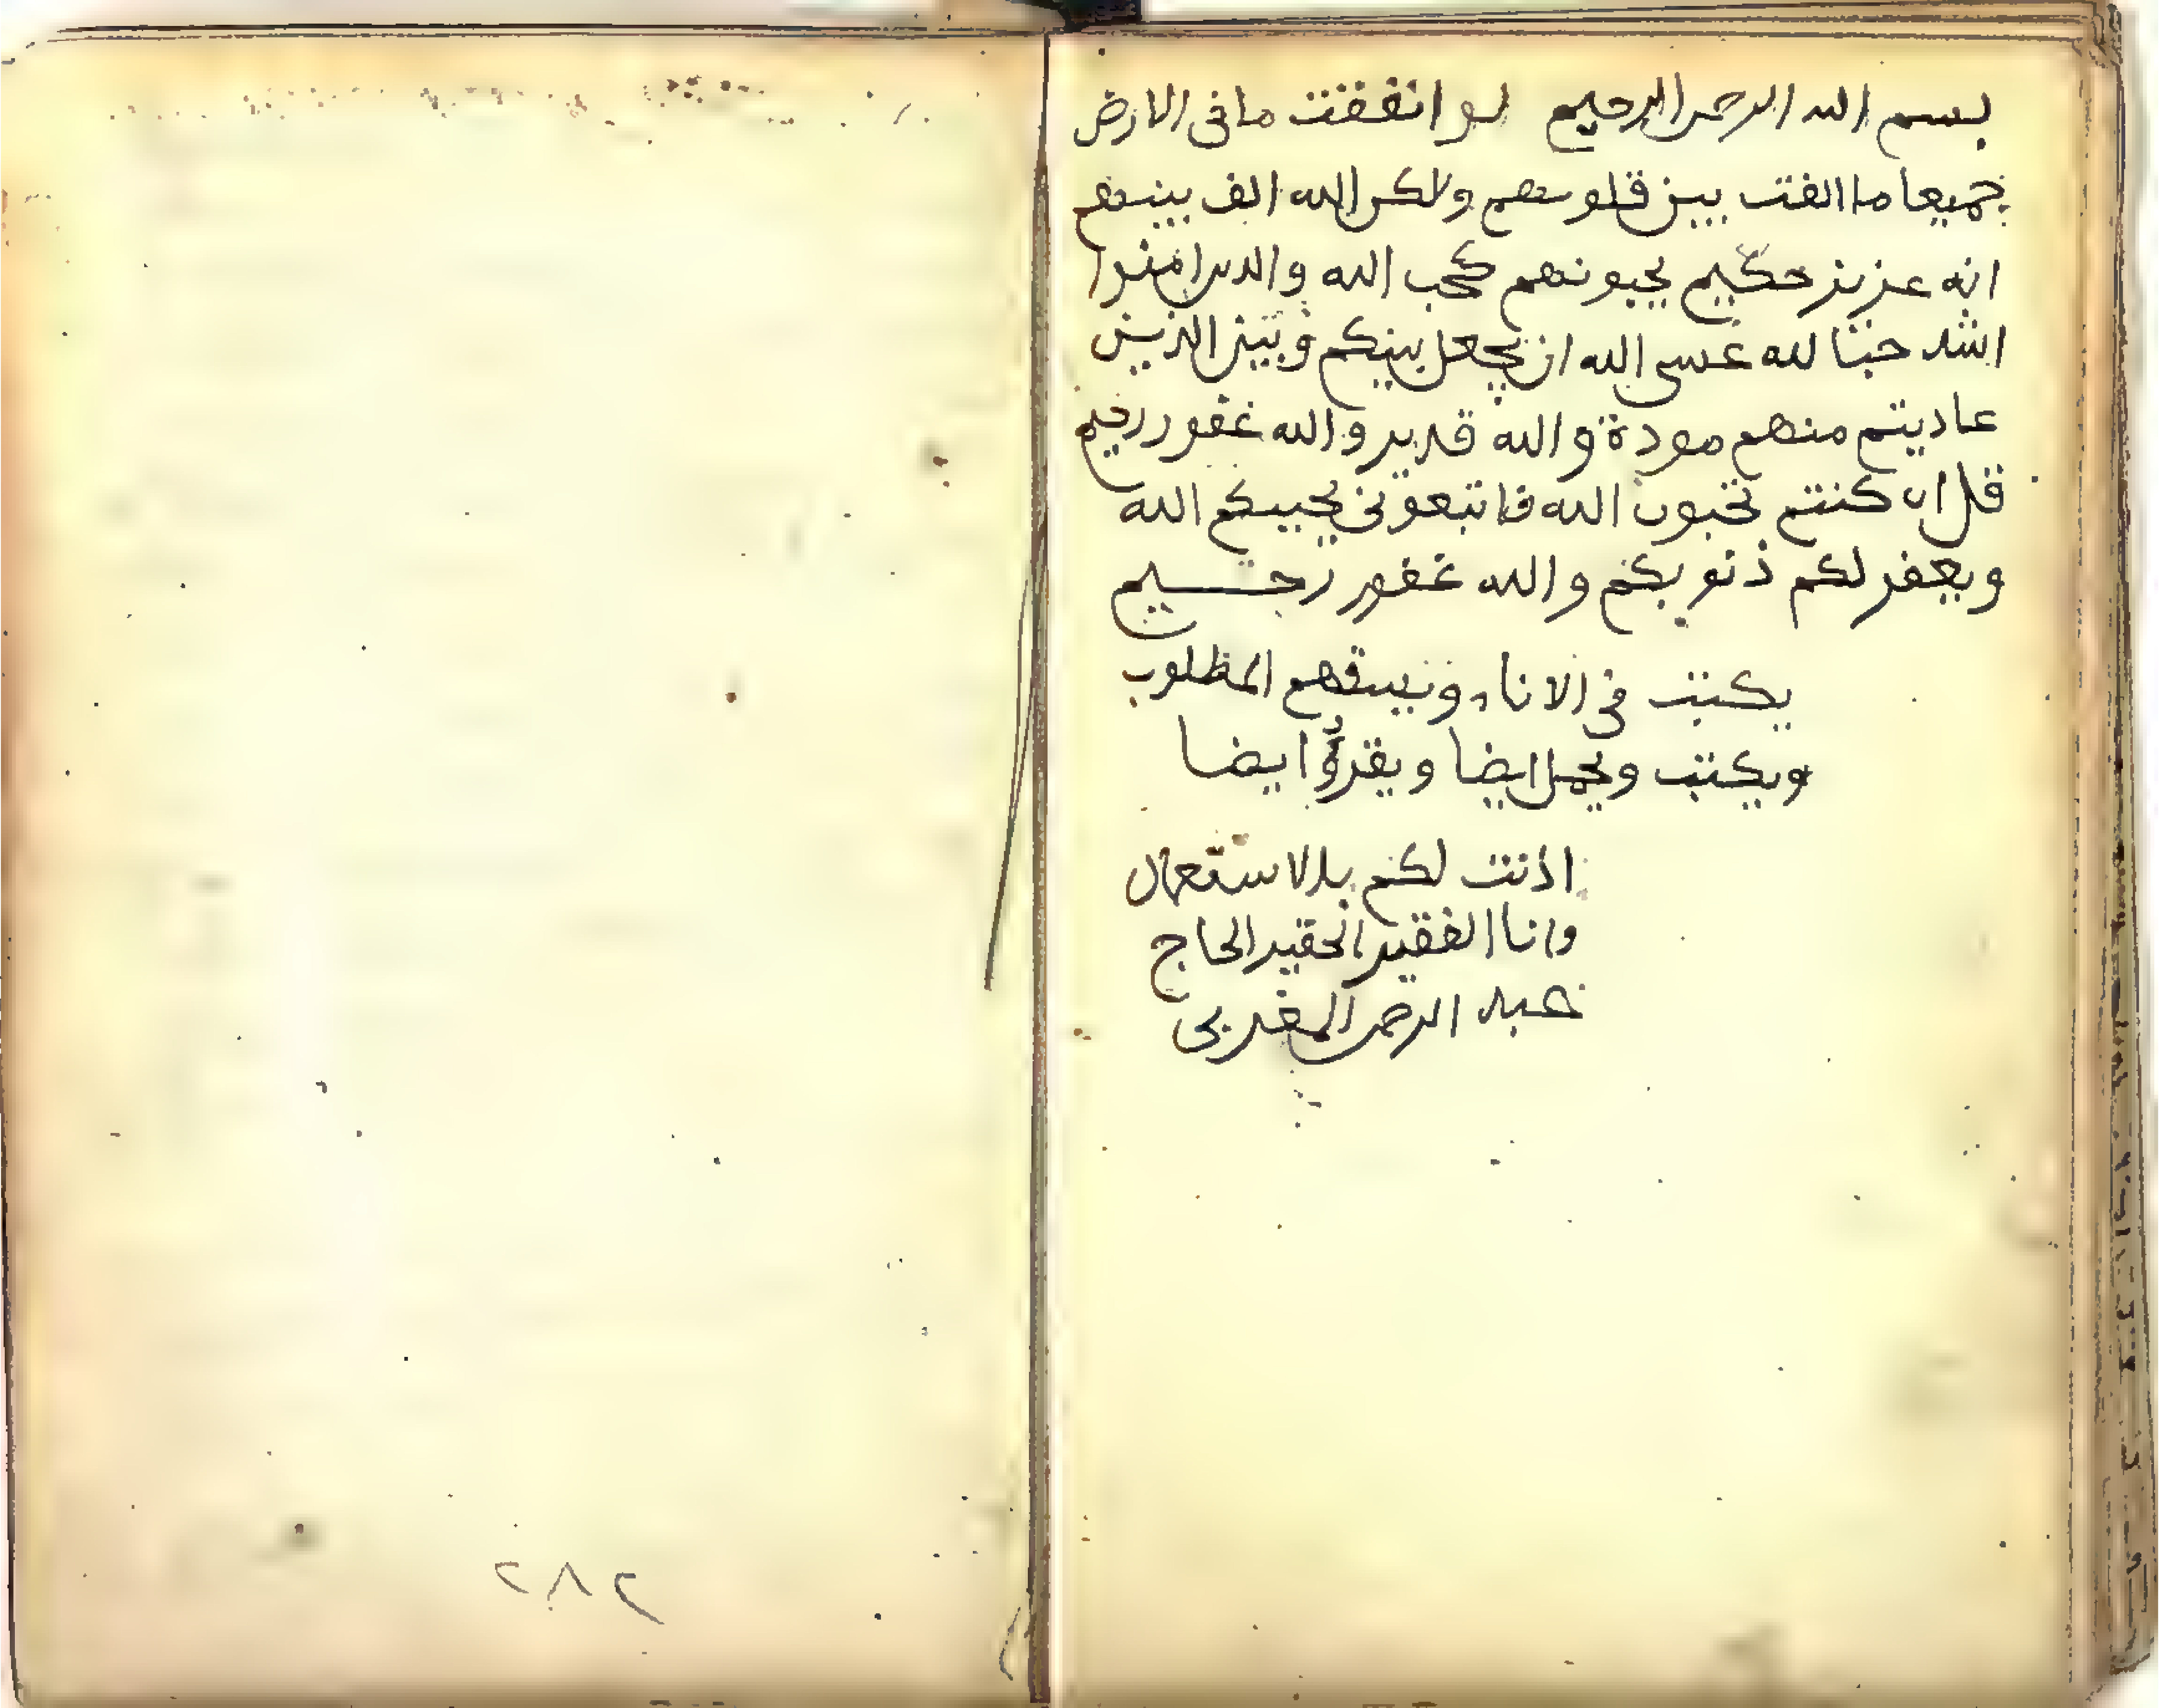 بسم الله الرحمن الرحيم لو انفقت ما فى الارض
جميعا ما الفت بين قلوبهم ولكن الله الف بينهم
انه عزيز حكيم يحبونهم كحب الله والذين امنوا
اشد حبا لله عسى الله ان يجعل بينكم وبين الذين
عاديتم منهم مودة والله قدير والله غفور رحيم
قل ان كنتم تحبون الله فاتبعونى يحببكم الله
ويغفر لكم ذنوبكم والله غفور رحيم
يكتب فى الاناء المطلوب
ويكتب ويحمل ايضا ويقرؤ ايضا
اذنت لكم بالاستعمال
وانا الفقير الحقير الحاج
عبد الرحمن المغربى
٢٨٢